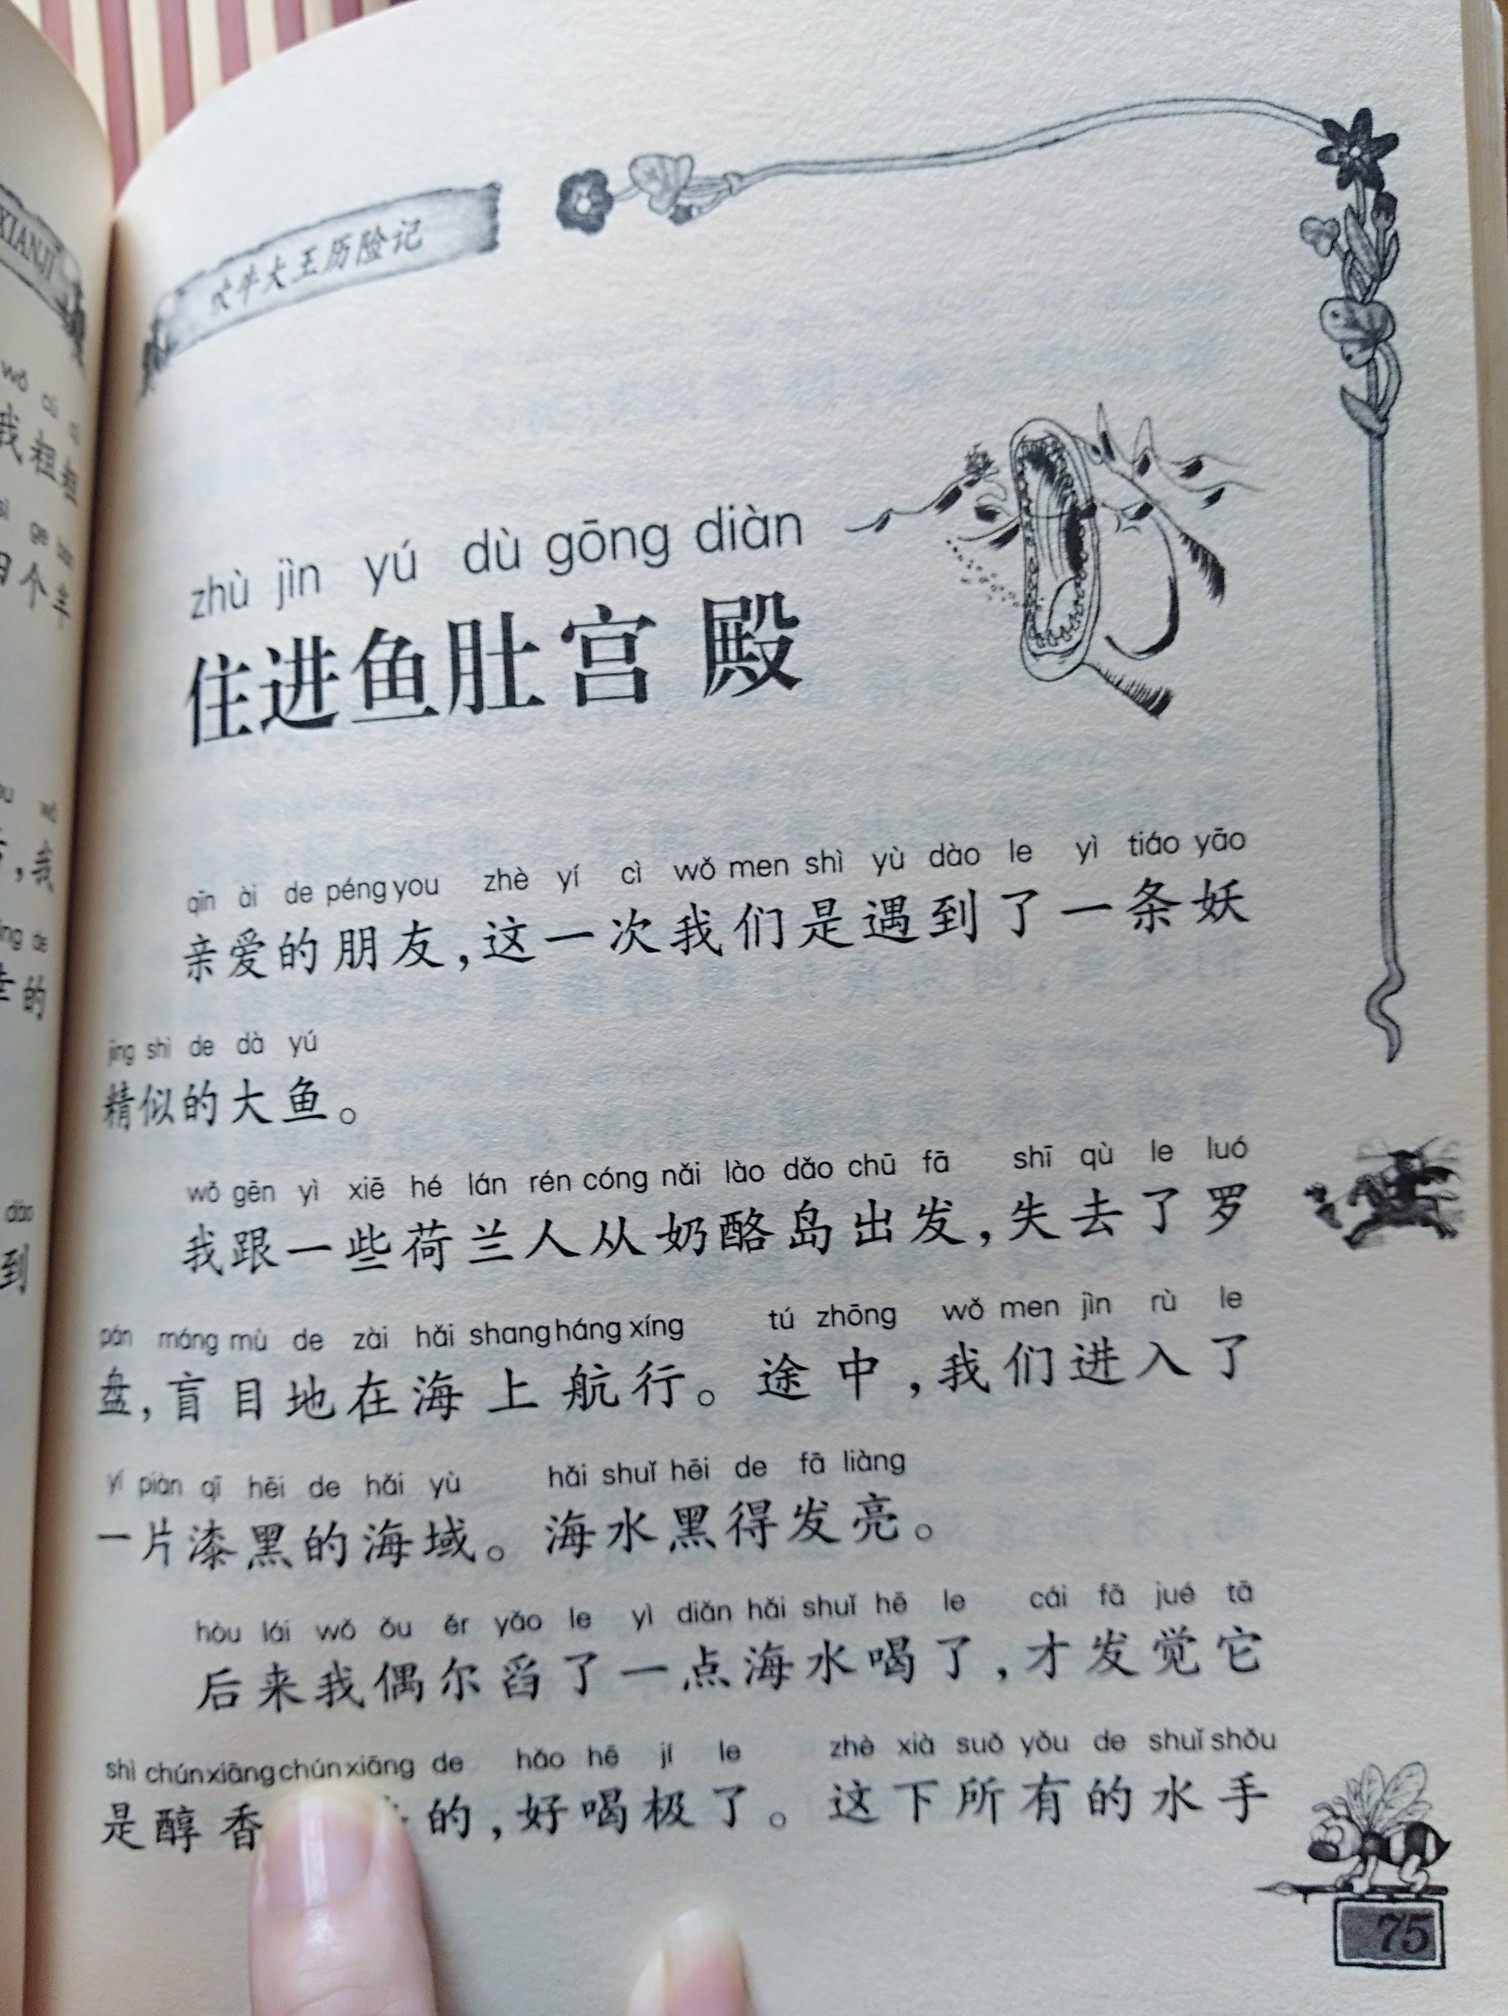 XIANJI
wǒ cū
我粗粗
gè
四个羊
wǒ
,我
de
的
dào
到
吹牛大王历险记
zhù jìn yú dù gōng diàn
住进鱼肚宫殿
qīn ài de péng you zhè yí cì wǒ men shì yù dào le yì tiáo yāo
亲爱的朋友,这一次我们是遇到了一条妖
jing shì de dà yú
精似的大鱼。
wǒ gēn yì xiē hé lán rén cóng nǎi lào dǎo chū fā shī qù le luó
我跟一些荷兰人从奶酪岛出发,失去了罗
pán máng mù de zài hǎi shang háng xíng tú zhōng wǒ men jìn rù le
盘,盲目地在海上航行。途中,我们进入了
yí piàn qī hēi de hǎi yù hǎi shuǐ hēi de fā liàng
一片漆黑的海域。海水黑得发亮。
hòu lái wǒ ǒu ěr yǎo le yì diǎn hǎi shuǐ hē le cái fā jué tā
后来我偶尔舀了一点海水喝了,才发觉它
shì chún xiāng chún xiāng de hǎo hē jí le zhè xià suǒ yǒu de shuǐ shǒu
是醇香的,好喝极了。这下所有的水手
75